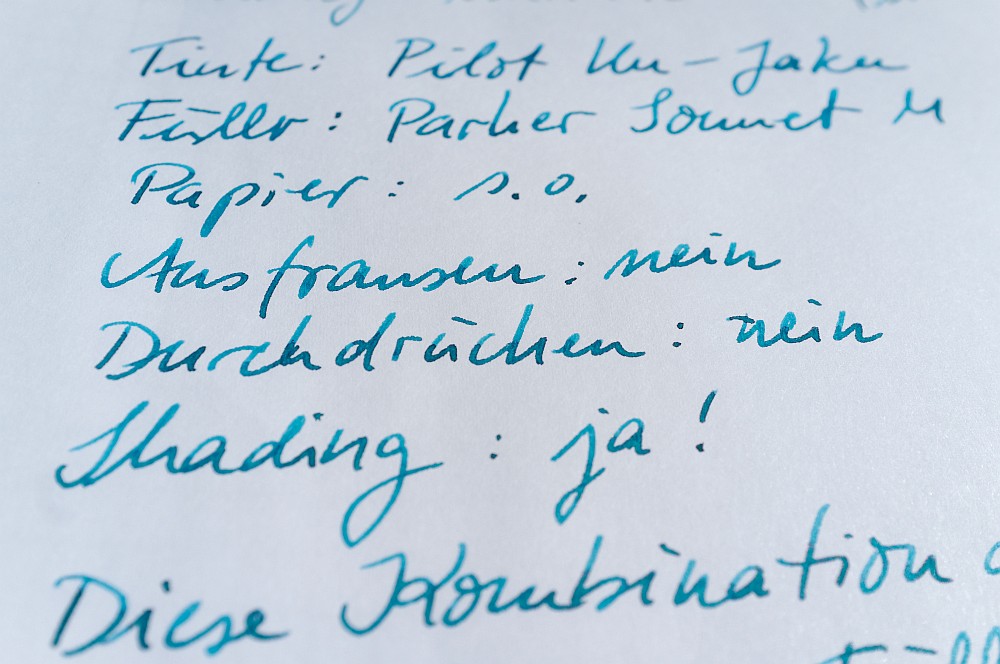 Tinte: Pilot Ku-Jaku
Füller: Parker Sonnet M
Papier: s.o.
Ausfransen: nein
Durchdrücken: nein
Shading: ja!
Diese Kombination